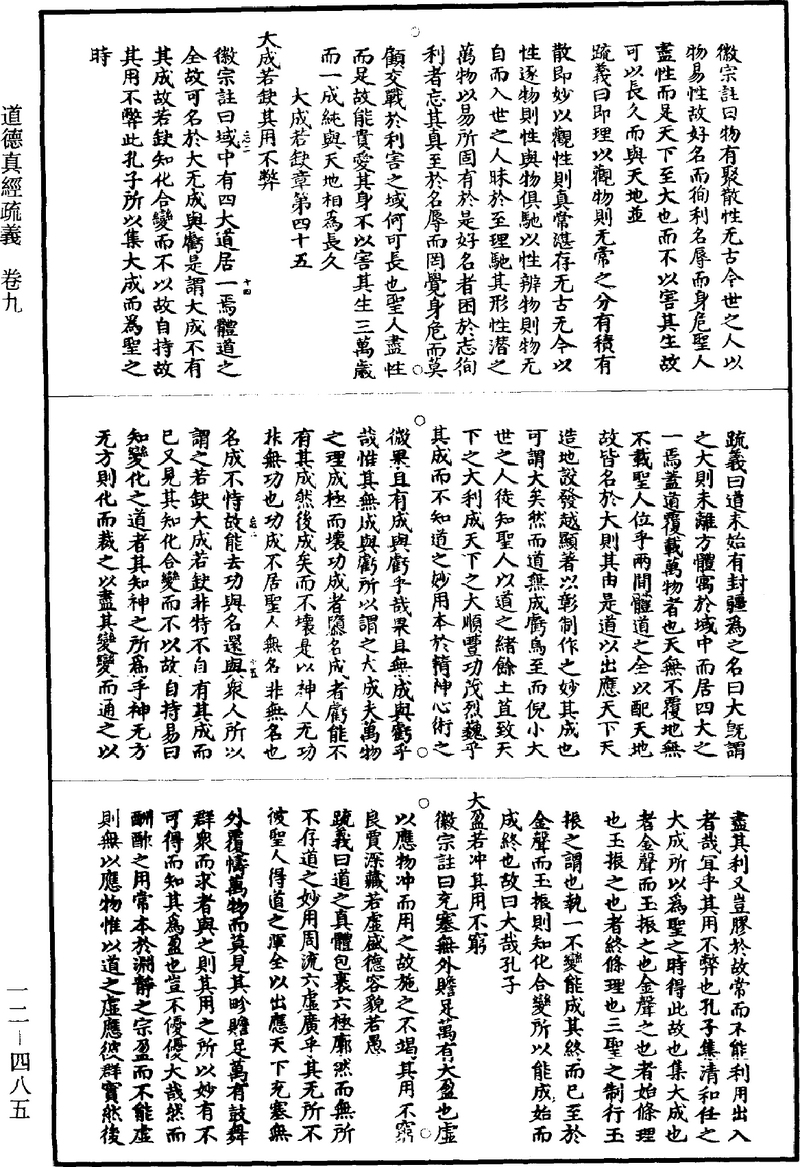 道德真經疏義　卷九
一二－四八五
徽宗註曰物有聚散性无古今世之人以
物易性故好名而徇利名辱而身危聖人
盡性而足天下至大也而不以害其生故
可以長久而與天地並
疏義曰即理以觀物則无常之分有積有
散即妙以觀性則真常湛存无古无今以
性逐物則性與物俱馳以性辨物則物无
自而入世之人昧於至理馳其形性潛之
萬物以易所固有於是好名者困於志徇
利者忘其真至於名辱而罔覺身危而莫
顧交戰於利害之域何可長也聖人盡性
而足故能貴愛其身不以害其生三萬歲
而一成純與天地相為長久
大成若缺章第四十五
大成若缺其用不弊
徽宗註曰域中有四大道居一焉體道之
全故可名於大无成與虧是謂大成不有
其成故若缺知化合變而不以故自持故
其用不弊此孔子所以集大成而為聖之
時
疏義曰道未始有封疆為之名曰大旣謂
之大則未離方體寓於域中而居四大之
一焉蓋道覆載萬物者也天無不覆地無
不載聖人位乎兩間體道之全以配天地
故皆名於大則其由是道以出應天下天
造地設發越顯著以彰制作之妙其成也
可謂大矣然而道無成虧烏至而倪小大
世之人徒知聖人以道之緒餘土苴致天
下之大利成天下之大順豐功茂烈巍乎
其成而不知道之妙用本於精神心術之
微果且有成與虧乎哉果且無成與虧乎
哉惟其無成與虧所以謂之大成夫萬物
之理成極而壞功成者隳名成者虧能不
有其成然後成矣而不壞是以神人无功
非無功也功成不居聖人無名非無名也
名成不恃故能去功與名還與衆人所以
謂之若缺大成若缺非特不自有其成而
已又見其知化合變而不以故自持易曰
知變化之道者其知神之所為乎神无方
无方則化而裁之以盡其變變而通之以
盡其利又豈膠於故常而不能利用出入
者哉宜乎其用不弊也孔子集清和任之
大成所以為聖之時得此故也集大成也
者金聲而玉振之也金聲之也者始條理
也玉振之也者終條理也三聖之制行玉
振之謂也執一不變能成其終而已至於
金聲而玉振則知化合變所以能成始而
成終也故曰大哉孔子
大盈若冲其用不窮
徽宗註曰充塞無外贍足萬有大盈也虛
以應物冲而用之故施之不竭其用不窮
良賈深藏若虛盛德容貌若愚
疏義曰道之真體包裹六極廓然而無所
不存道之妙用周流六虛廣乎其无所不
彼聖人得道之渾全以出應天下充塞無
外覆幬萬物而莫見其畛贍足萬有鼓舞
群衆而求者與之則其用之所以妙有不
可得而知其為盈也豈不優優大哉然而
酬酢之用常本於淵靜之宗盈而不能虛
則無以應物惟以道之虛應彼群實然後